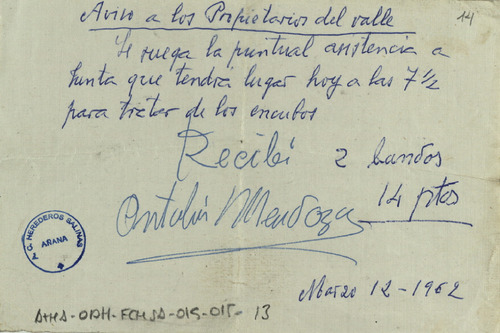 14
Aviso a los Propietarios del valle
Se ruega la puntual asistencia a
Junta que tendra lugar hoy a las 7 1/2
para tratar de los encubos
Recibí 2 bandos
14 ptas
Antolín Mendoza
T. G. HEREDEROS SALINAS
ARANA
Marzo 12-1962
ATHA-ODH-ECHSA-015-015-13